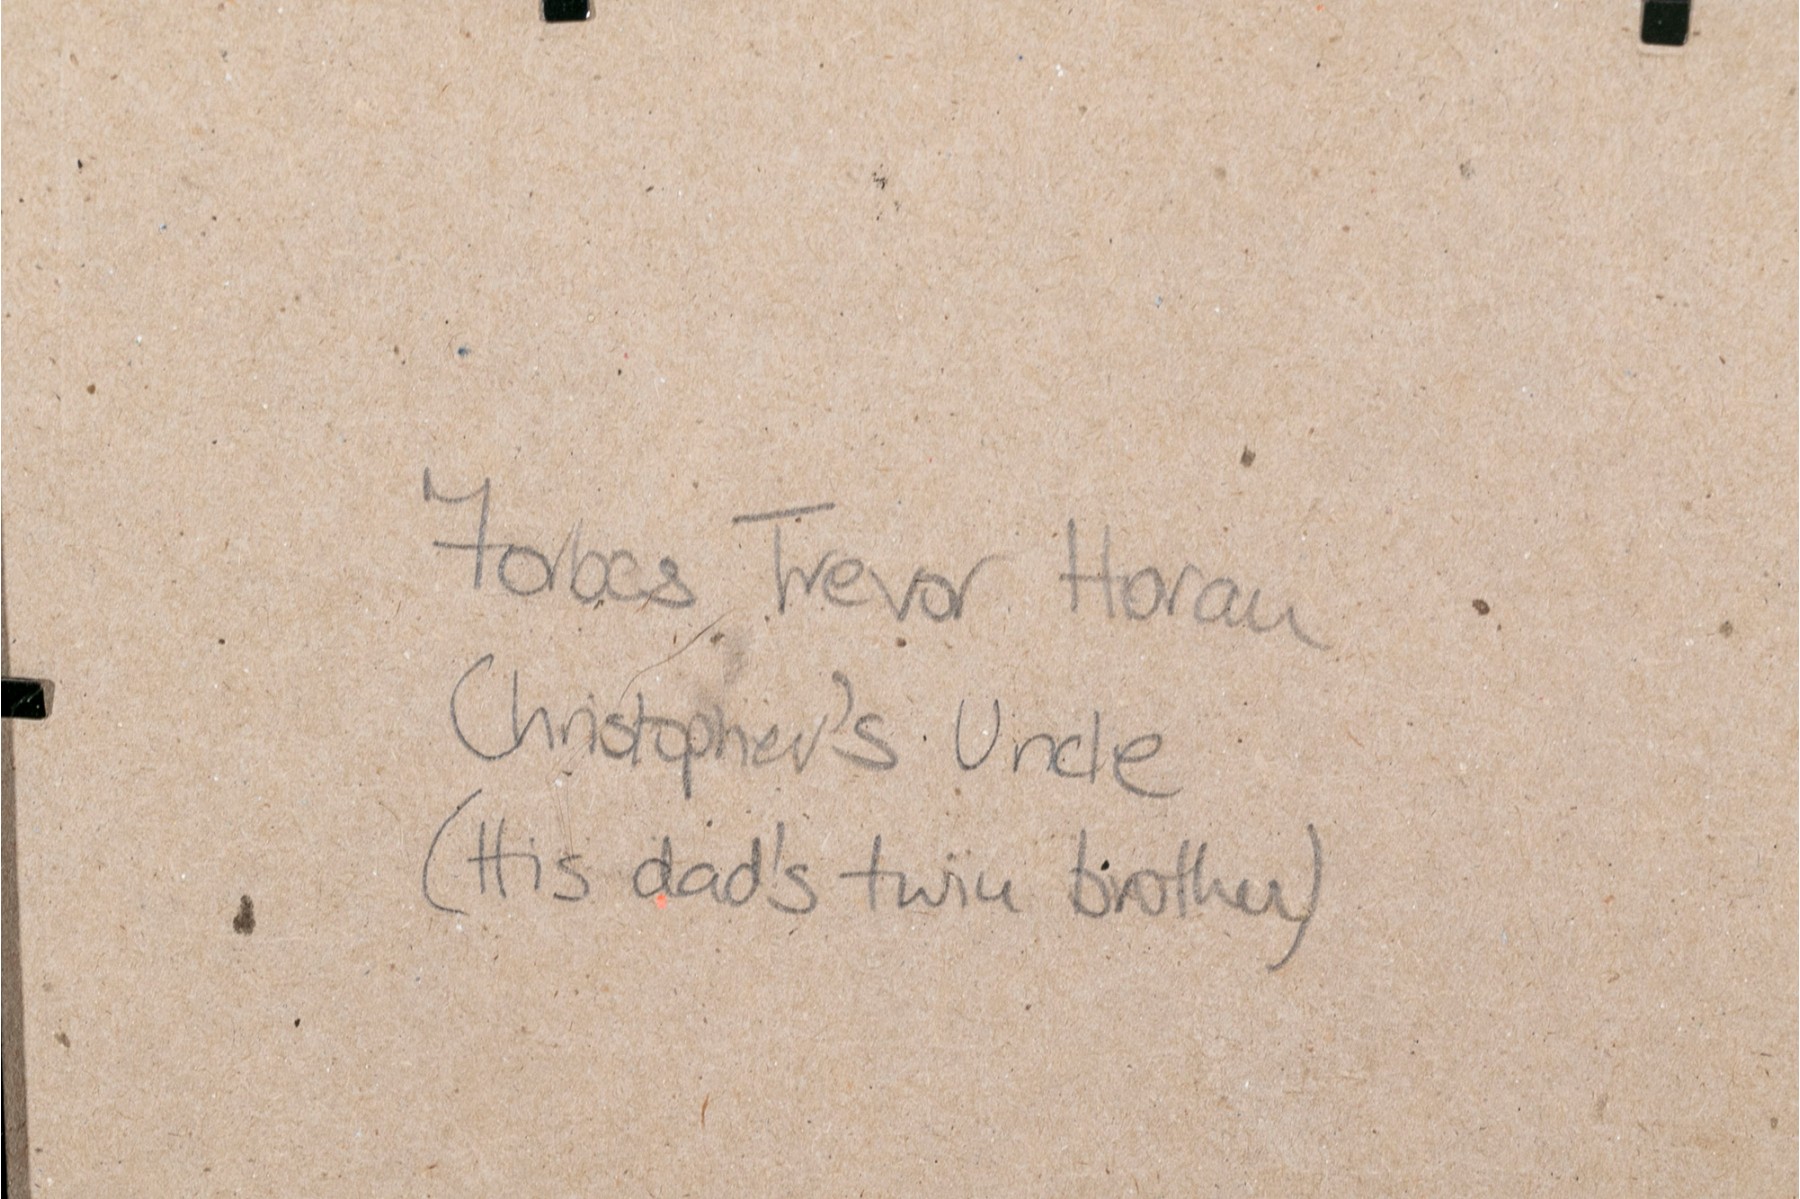 Forbes Trevor Horan
Christopher's Uncle
(His dad's twin brother)